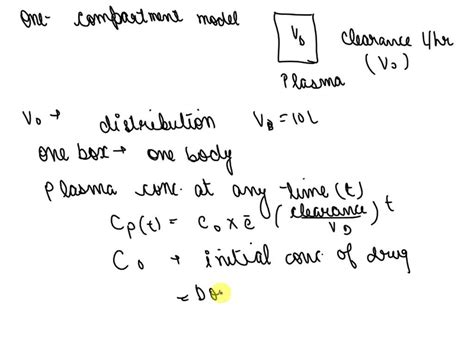 one-compartment model
V₀
clearance L/hr
(V₀)
Plasma
V₀ → distribution V_D = 10L
one box → one body
Plasma conc. at any time (t)
Cp(t) = C₀ x e⁻(clearance/V_D) t
C₀ → initial conc of drug
= Do